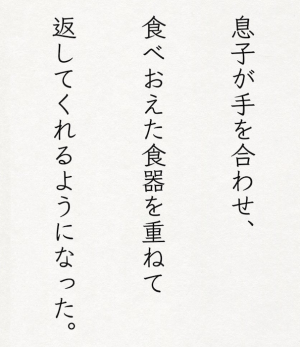 息子が手を合わせ、
食べおえた食器を重ねて
返してくれるようになった。